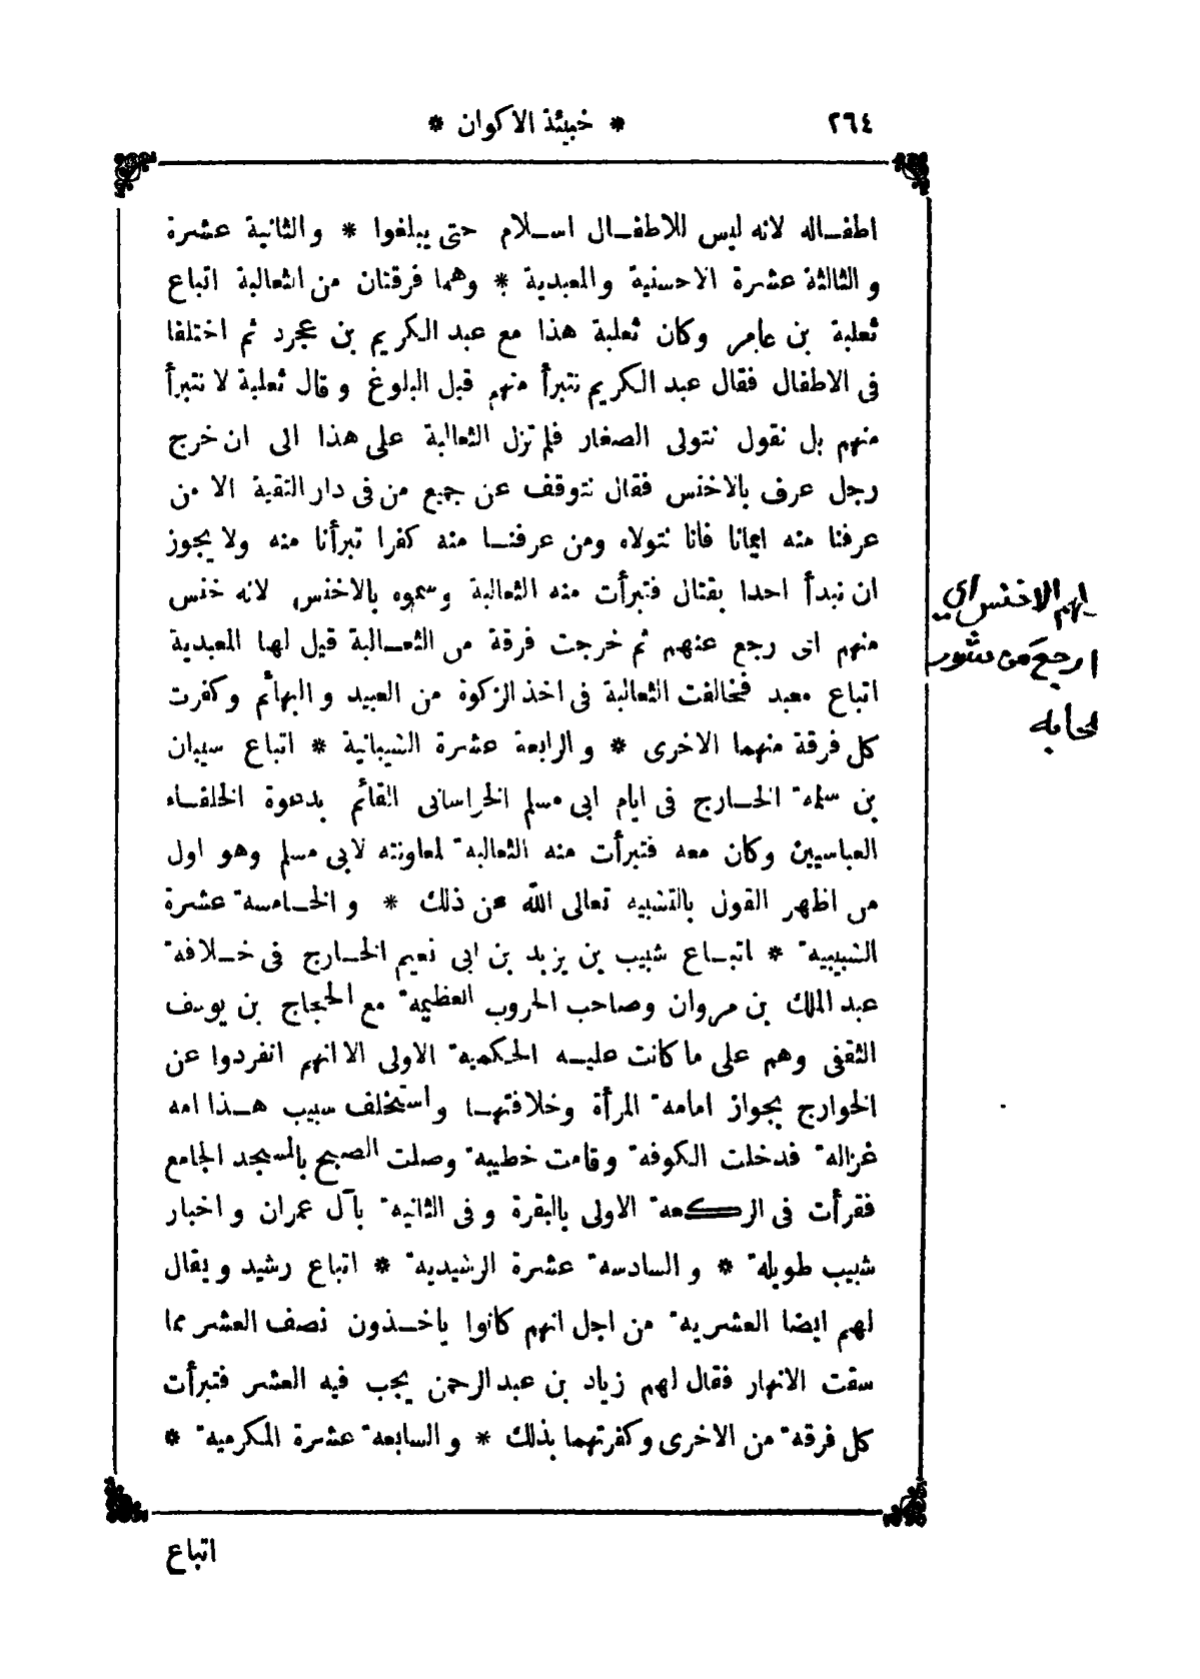 ٢٦٤
* خبيئة الاكوان *
اطفـاله لانه ليس للاطفـال اسـلام حتى يبلغوا * والثانية عشرة
و الثالثة عشرة الاحسنية والمعبدية * وهما فرقتان من الثعالبة اتباع
ثعلبة بن عامر وكان ثعلبة هذا مع عبد الكريم بن عجرد ثم اختلفا
فى الاطفال فقال عبد الكريم نتبرأ منهم قبل البلوغ و قال ثعلبة لا نتبرأ
منهم بل نقول نتولى الصغار فلم تزل الثعالبة على هذا الى ان خرج
رجل عرف بالاخنس فقال نتوقف عن جميع من فى دار التقية الا من
عرفنا منه ايمانا فانا نتولاه ومن عرفنـا منه كفرا تبرأنا منه ولا يجوز
ان نبدأ احدا بقتال فتبرأت منه الثعالبة وسموه بالاخنس لانه خنس
منهم اى رجع عنهم ثم خرجت فرقة من الثعـالبة قيل لها المعبدية
اتباع معبد فخالفت الثعالبة فى اخذ الزكوة من العبيد و البهائم وكفرت
كل فرقة منهما الاخرى * و الرابعة عشرة الشيبانية * اتباع سيبان
بن سلمة الخـارج فى ايام ابى مسلم الخراسانى القائم بدعوة الخلفـاء
العباسيين وكان معه فتبرأت منه الثعالبة لمعاونته لابى مسلم وهو اول
من اظهر القول بالتشبيه تعالى الله عن ذلك * و الخـامسة عشرة
الشبيبية * اتبـاع شبيب بن يزيد بن ابى نعيم الخـارج فى خـلافة
عبد الملك بن مروان وصاحب الحروب العظيمة مع الحجاج بن يوسف
الثقفى وهم على ما كانت عليـه الحكمية الاولى الا انهم انفردوا عن
الخوارج بجواز امامة المرأة وخلافتهـا واستخلف سبيب هـذا امه
غزالة فدخلت الكوفة و قامت خطيبة وصلت الصبح بالمسجد الجامع
فقرأت فى الركعة الاولى بالبقرة و فى الثانية بآل عمران و اخبار
شبيب طويلة * و السادسة عشرة الرشيدية * اتباع رشيد و يقال
لهم ايضا العشرية من اجل انهم كانوا ياخـذون نصف العشر مما
سقت الانهار فقال لهم زياد بن عبد الرحمن يجب فيه العشر فتبرأت
كل فرقة من الاخرى وكفرتهما بذلك * و السابعة عشرة المكرمية *
اتباع
الاخنس اى
رجع من